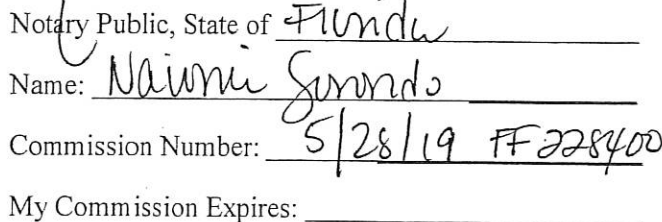 Notary Public, State of Florida
Name: Naomi
Commission Number: 5/28/19 FF 228400
My Commission Expires: